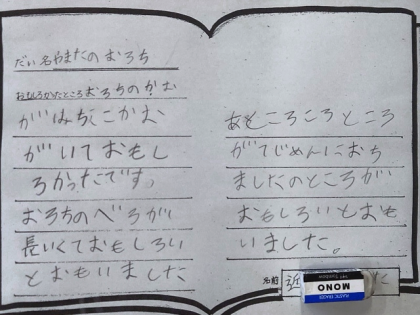 だい名やまたのおろち
おもしろかたところおろちのかお
がみちこかお
がいておもし
ろかったです。
おろちのべろが
長いくておもしろい
とおもいました
あところころところ
がてじめんにおち
ましたのところが
おもしろいとおも
いました。
名前 近
た
PLASTIC ERASER
MONO